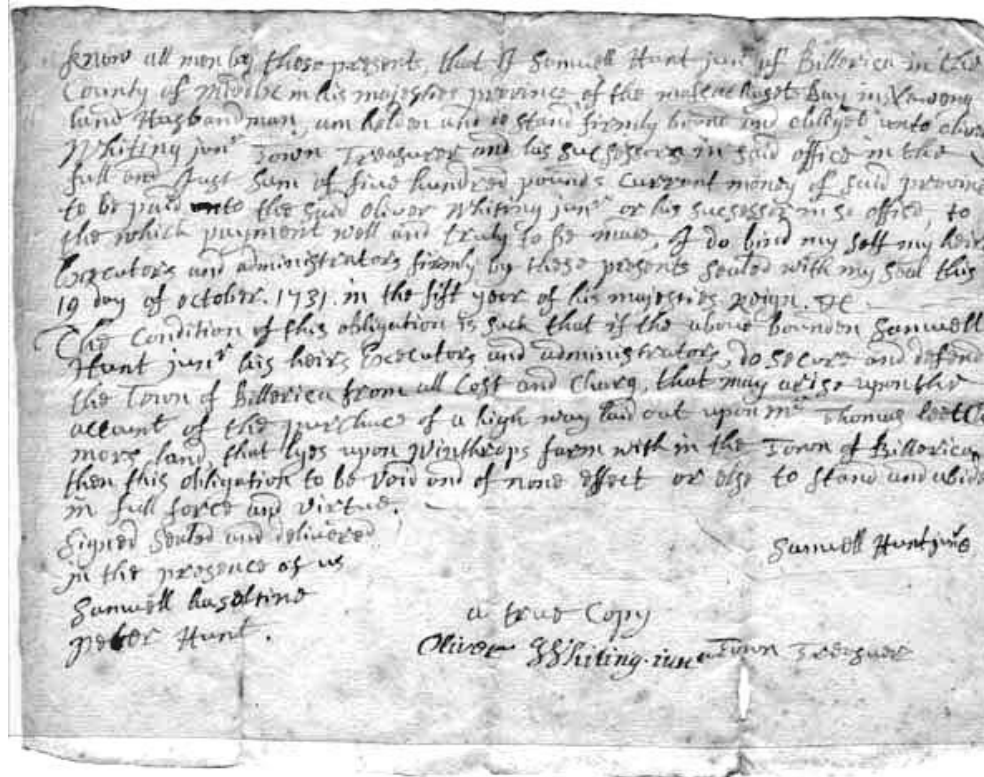 know all men by these presents, that I Samuell Hunt junr of Billerica in the
County of Middlx in his majesties province of the massachuset Bay in Neweng
land Husbandman, am holden and do stand firmly bound and obliged unto oliver
Whiting junr Town Treasurer and his successors in said office in the
full and Just sum of five hundred pounds current money of said province
to be paid unto the said Oliver Whiting junr or his successor in sd office, to
the which payment well and truly to be made, I do bind my self my heirs
Executors and administrators firmly by these presents sealed with my seal this
19 day of october. 1731. in the fift year of his majesties reign. &c
The Condition of this obligation is such that if the above bounden Samuell
Hunt junr his heirs Executors and administrators, do secure and defend
the Town of Billerica from all Cost and Charg, that may arise upon the
account of the purchace of a high way laid out upon mr Thomas
more land, that lyes upon Winthrops farm with in the Town of Billerica
then this obligation to be void and of none effect or else to stand and abide
in full force and virtue.
Signed Sealed and delivered
in the presence of us
Samuell Hunt junr
Samuell haseltine
peter Hunt.
a true Copy
Oliver Whiting. iunr Town Tresurer